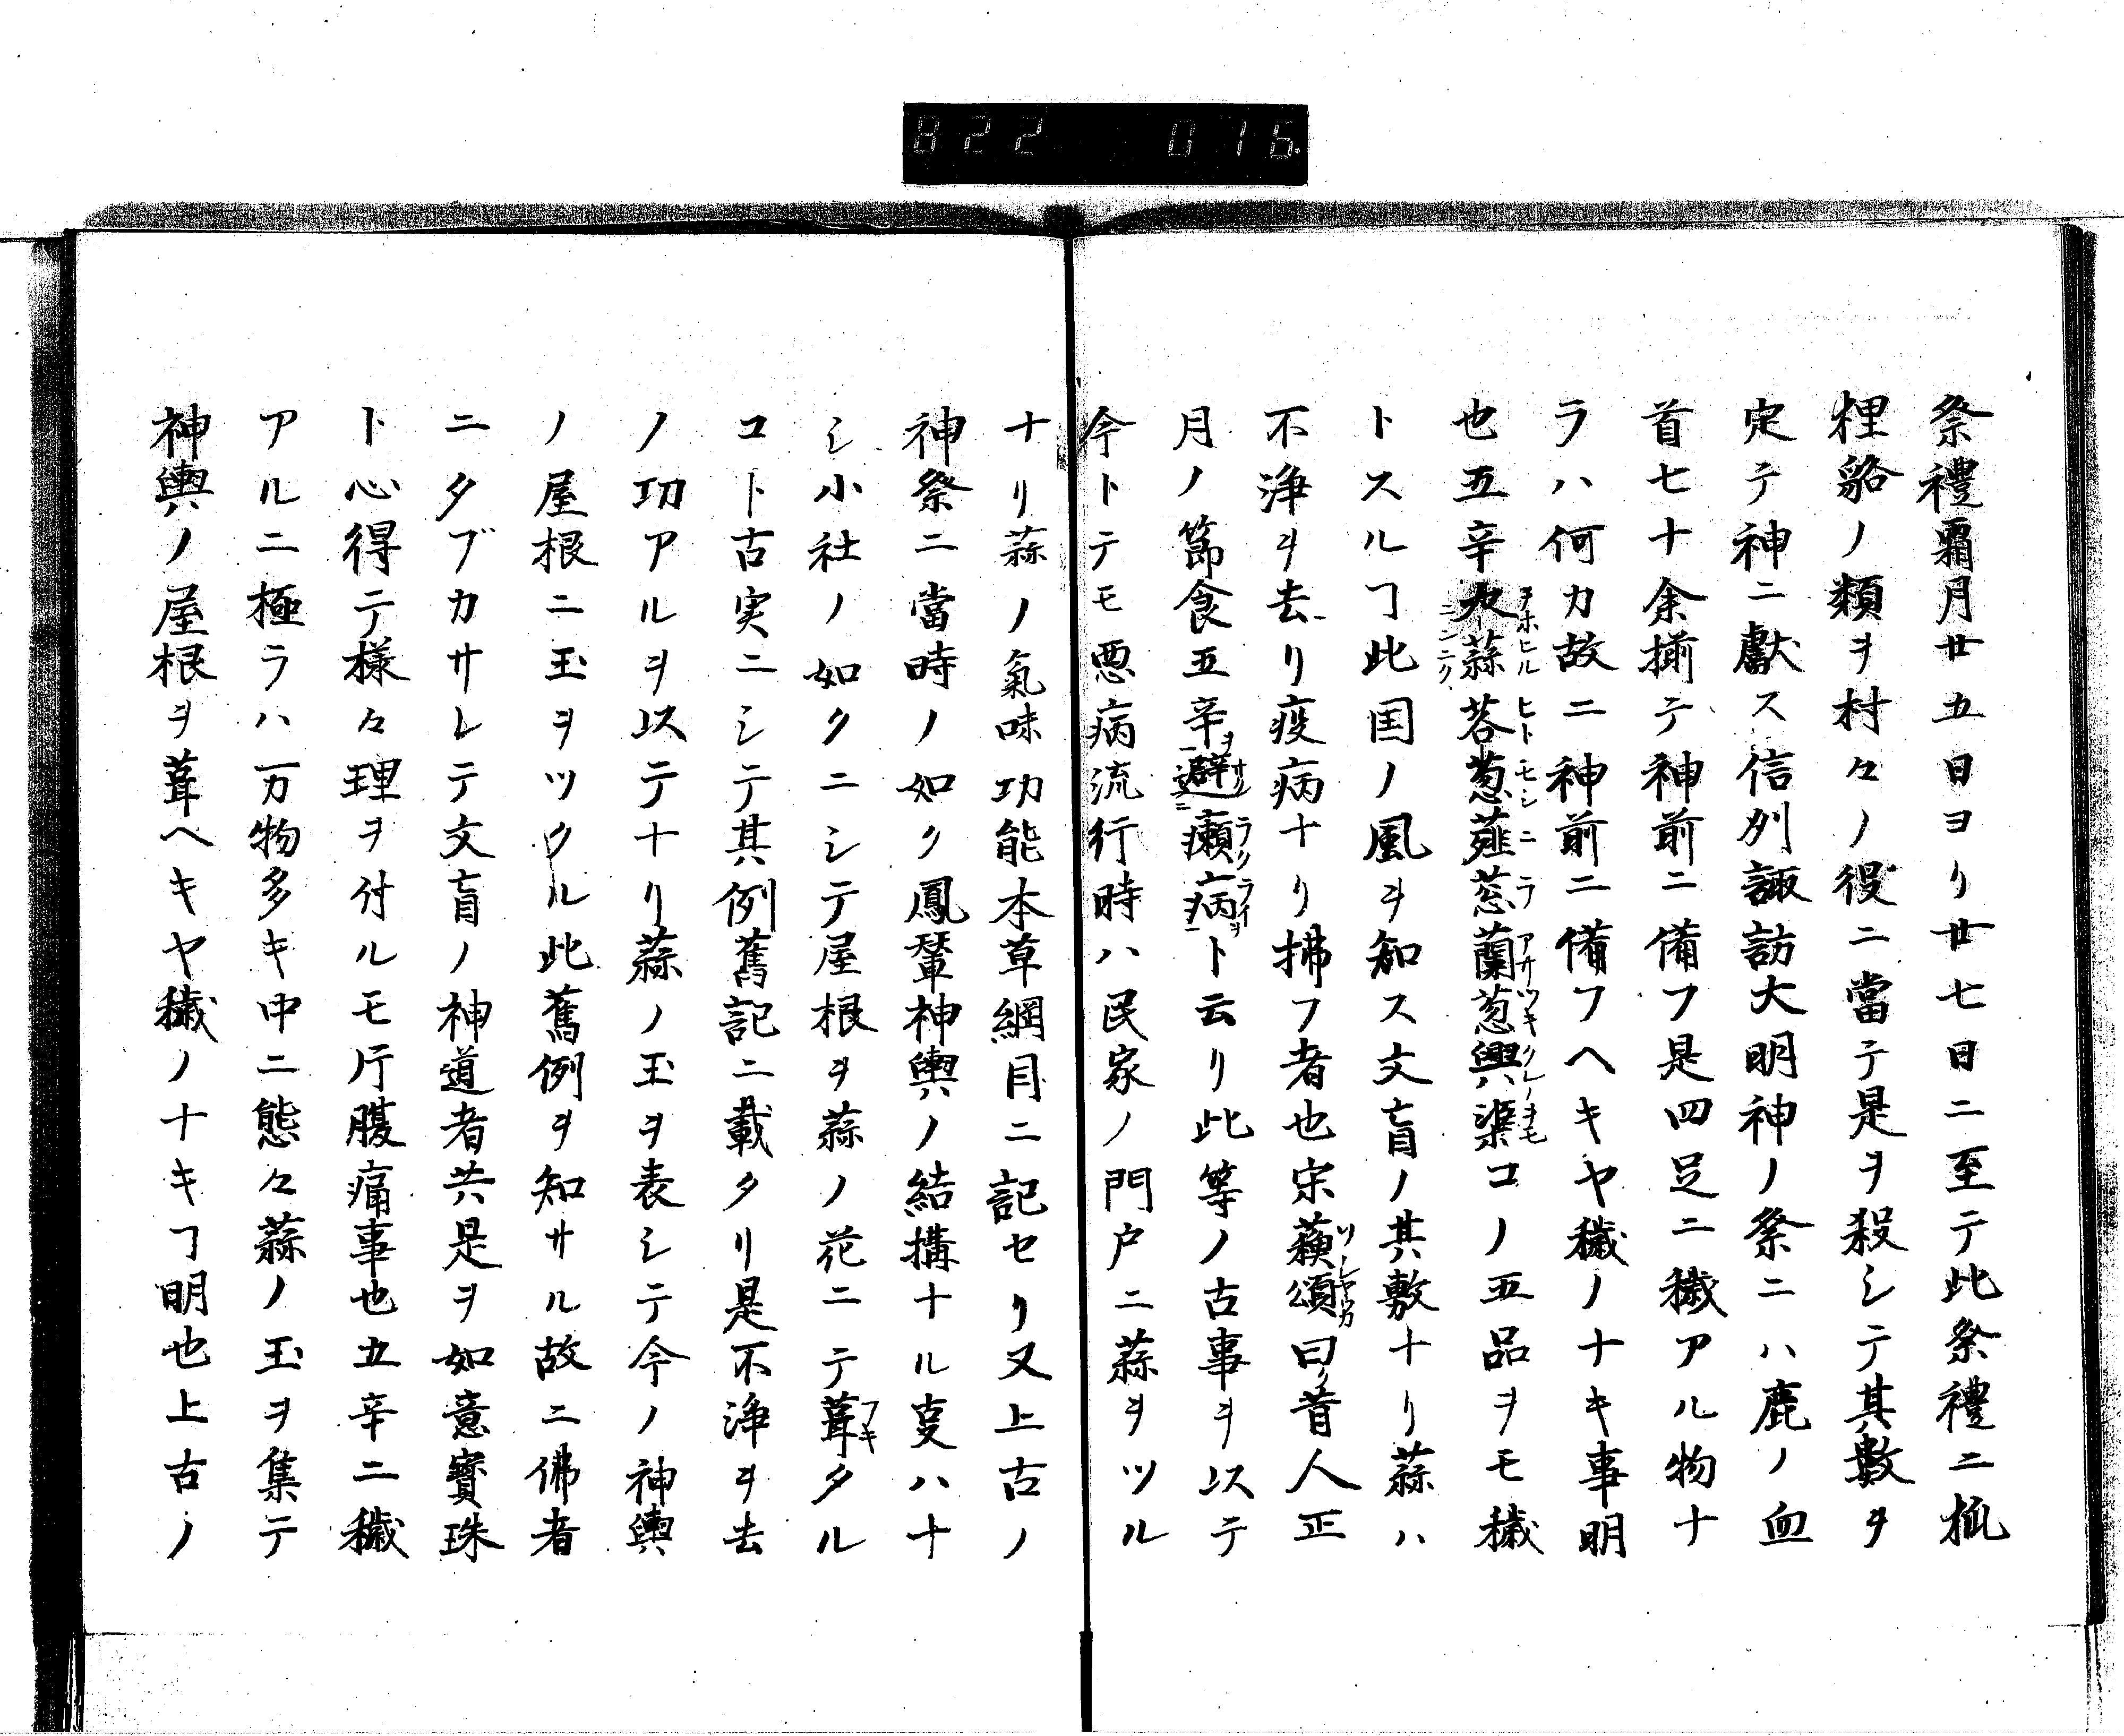 822 016
祭禮霜月廿五日ヨリ廿七日ニ至テ此祭禮ニ狐
狸貉ノ類ヲ村々ノ役ニ當テ是ヲ殺シテ其數ヲ
定テ神ニ獻ス信列諏訪大明神ノ祭ニハ鹿ノ血
首七十余揃テ神前ニ備フ是四足ニ穢アル物ナ
ラハ何カ故ニ神前ニ備フヘキヤ穢ノナキ事明
也五辛大蒜茖葱薤葱蘭葱興渠コノ五品ヲモ穢
トスルヿ此国ノ風ヲ知ス文盲ノ其敷ナリ蒜ハ
不淨ヲ去リ疫病ナリ拂フ者也宋蘓頌曰ク昔人正
月ノ節食五辛ヲ避癩病ヲト云リ此等ノ古事ヲ以テ
今トテモ悪病流行時ハ民家ノ門戸ニ蒜ヲツル
ナリ蒜ノ氣味功能本草綱目ニ記セリ又上古ノ
神祭ニ當時ノ如ク鳳輦神輿ノ結構ナル叓ハナ
シ小社ノ如クニシテ屋根ヲ蒜ノ花ニテ葺タル
コト古実ニシテ其例舊記ニ載タリ是不淨ヲ去
ノ功アルヲ以テナリ蒜ノ玉ヲ表シテ今ノ神輿
ノ屋根ニ玉ヲツクル此舊例ヲ知サル故ニ佛者
ニタブカサレテ文盲ノ神道者共是ヲ如意寳珠
ト心得テ様々理ヲ付ルモ片腹痛事也五辛ニ穢
アルニ極ラハ万物多キ中ニ態々蒜ノ玉ヲ集テ
神輿ノ屋根ヲ葺ヘキヤ穢ノナキヿ明也上古ノ